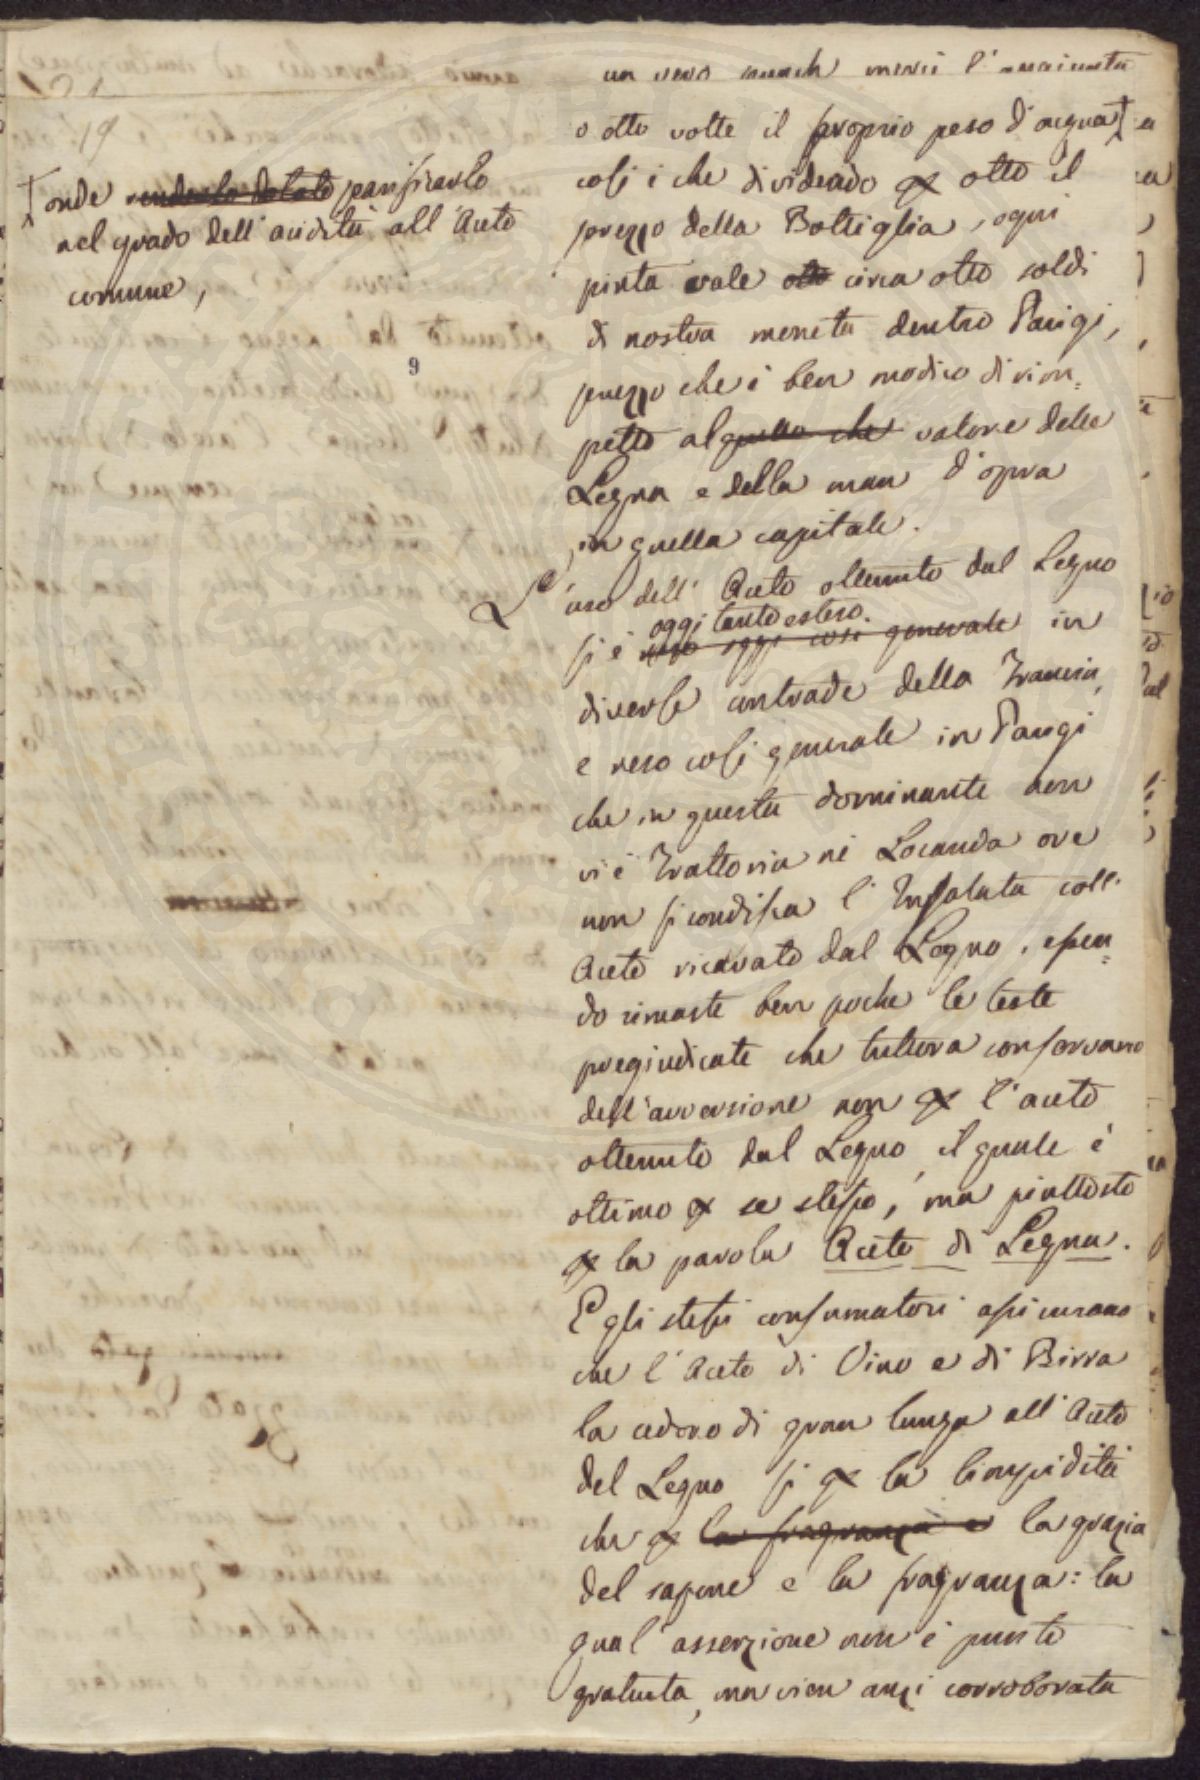 19
onde renderlo dotato parificarlo
nel grado dell'acidità all'Aceto
comune,
9
o otto volte il proprio peso d'acqua
cosi è che dividendo per otto il
prezzo della Bottiglia, ogni
pinta vale otto circa otto soldi
di nostra moneta dentro Parigi,
prezzo che è ben modico di rim=
petto al quello che valore della
Legna e della man d'opra
in quella capitale.
L'uso dell'Aceto ottenuto dal Legno
oggi tanto esteso
si è reso oggi cosi generale in
diverse contrade della Francia,
e reso cosi generale in Parigi
che in questa dominante non
vi è Trattoria nè Locanda ove
non si condisca l'Insalata coll'
Aceto ricavato dal Legno, essen=
do rimaste ben poche le teste
pregiudicate che tuttora conservano
dell'avversione non per l'aceto
ottenuto dal Legno, il quale è
ottimo per se stesso, ma piuttosto
per la parola Aceto di Legna.
E gli stessi consumatori assicurano
che l'Aceto di Vino e di Birra
la cedono di gran lunga all'Aceto
del Legno si per la limpidità
che per la fragranza e la grazia
del sapore e la fragranza: la
qual'asserzione non è punto
gratuita, ma vien anzi corroborata